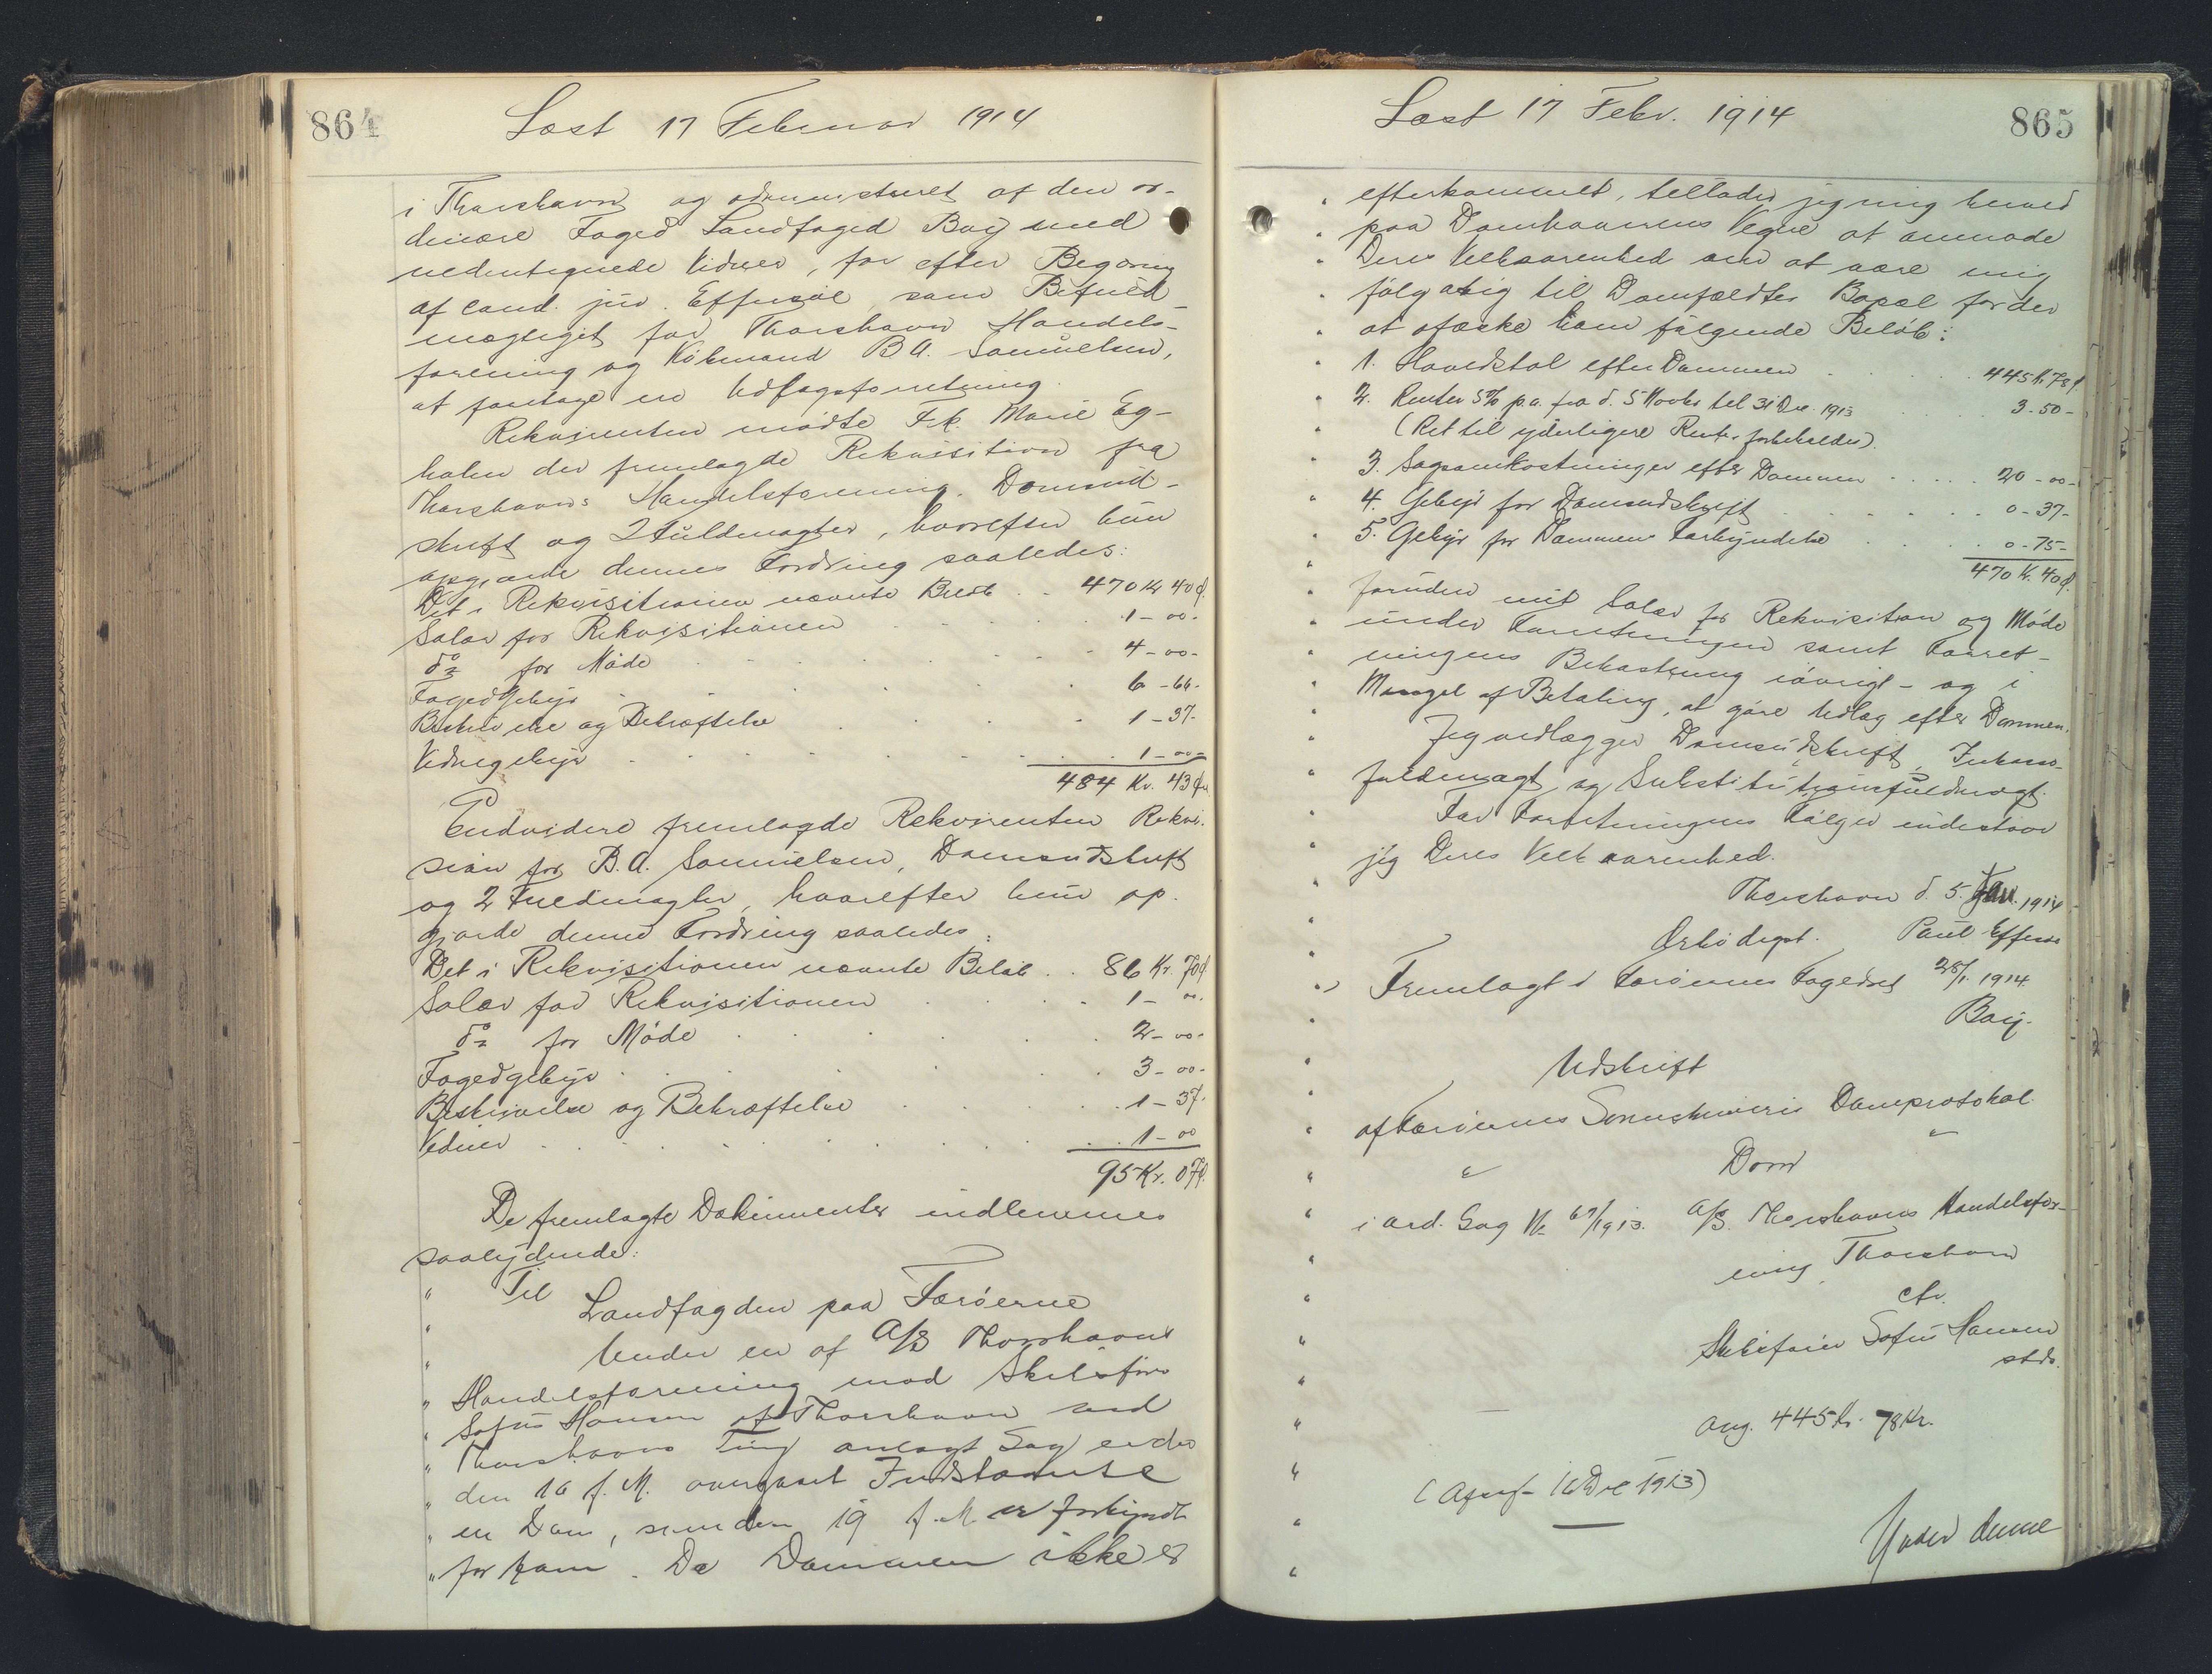 864
Læst 17 Februar 1914
i Thorshavn og administreret af den or-
dinære Foged Landfoged Bay med
nedentegnede Vidner, for efter Begæring
af cand. jur. Effersøe, som Befuld-
mægtiget for Thorshavns Handels-
forening og Købmand B A. Samuelsen,
at foretage en Udlægsforretning.
Rekvirenten mødte Frk. Marie Eg-
holm der fremlagde Rekvisition fra
Thorshavns Handelsforening, Domsud-
skrift og 2 Fuldmagter, hvorefter hun
opgjorde dennes Fordring saaledes:
Det i Rekvisitionen nævnte Beløb . . 470 Kr 40 Ø.
Salær for Rekvisitionen . . . 1 - 00 -
do for Møde . . . 4 - 00 -
Fogedgebyr . . . 6 - 66 -
Beskrivelse og Bekræftelse . . . 1 - 37 -
Vidnegebyr . . . 1 - 00 -
484 Kr. 43 Ø.
Endvidere fremlagde Rekvirenten Rekvi-
sion for B. A. Samuelsen, Domsudskrift
og 2 Fuldmagter, hvorefter hun op-
gjorde denne Fordring saaledes:
Det i Rekvisitionen nævnte Beløb . . 86 Kr. 70 Ø.
Salær for Rekvisitionen . . . 1 - 00 -
do for Møde . . . 2 - 00 -
Fogedgebyr . . . 3 - 00 -
Beskrivelse og Bekræftelse . . . 1 - 37 -
Vidner . . . 1 - 00
95 Kr. 07 Ø.
De fremlagte Dokumenter indlemmes
saalydende:
" Til
" Landfogden paa Færøerne
" Under en af A/S Thorshavns
" Handelsforening mod Skibsfører
" Sofus Hansen af Thorshavn ved
" Thorshavns Ting anlagt Sag er der
" den 16 f. M. overgaaet Indstævnte
" en Dom, som den 19 f. M. er forkyndt
" for ham. Da Dommen ikke er
Læst 17 Febr. 1914
865
" efterkommet, tillader jeg mig herved
" paa Domhaverens Vegne at anmode
" Deres Velbaarenhed om at være mig
" følgagtig til Domfældtes Bopæl for der
" at afæske ham følgende Beløb:
" 1. Hovedstol efter Dommen . . . 445 Kr 78 Ø.
" 2. Renter 5% p.a. fra d. 5 Novbr til 31 Dec. 1913 . . 3 - 50 -
" (Ret til yderligere Renter forbeholdes).
" 3. Sagsomkostninger efter Dommen . . . 20 - 00 -
" 4. Gebyr for Domsudskrift . . . 0 - 37 -
" 5. Gebyr for Dommens Forkyndelse . . . 0 - 75 -
" 470 Kr. 40 Ø.
" foruden mit Salær for Rekvisition og Møde
" under Forretningen samt Forret-
" ningens Bekostning iøvrigt - og i
" Mangel af Betaling, at gøre Udlæg efter Dommen.
" Jeg vedlægger Domsudskrift, Inkasso-
" fuldmagt og Substitutionsfuldmagt.
" For Forretningens Følger indestaar
" jeg Deres Velbaarenhed.
" Thorshavn d. 5. Jan. 1914
" Ærbødigst. Paul Effersøe
" Fremlagt i Færøernes Fogedret 28/1. 1914
" Bay.
" Udskrift
" af Færøernes Sorenskriveris Domprotokol.
" " Dom "
" i ord. Sag No 67/1913. A/S. Thorshavns Handelsfor-
" ening, Thorshavn
" ctr.
" Skibsfører Sofus Hansen
" stds.
" ang. 445 Kr. 78 Kr.
" (Afsagt 16 Dec 1913)
" Under denne